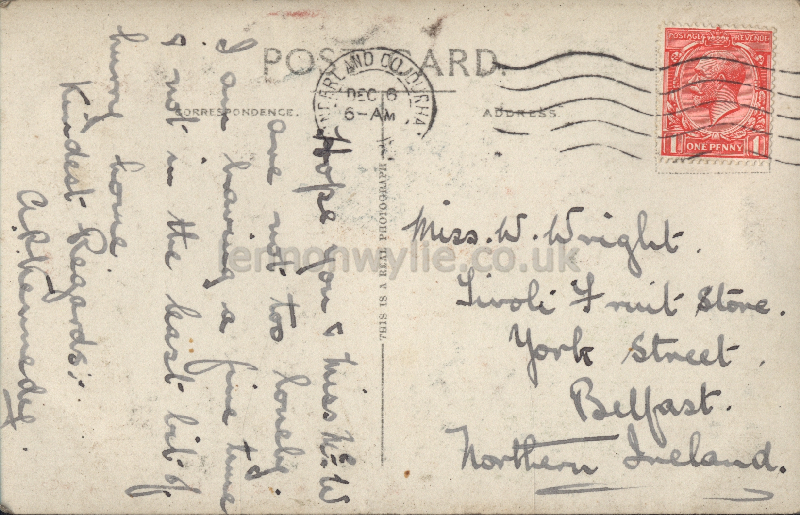 POST CARD.
CORRESPONDENCE.
ADDRESS.
DEC 6
6-AM
POSTAGE REVENUE
1 ONE PENNY 1
THIS IS A REAL PHOTOGRAPH
Hope you & Miss
are not too lonely.
I am having a fine time
& not in the least bit of
hurry home.
Kindest Regards.
Miss. W. Wright.
Tivoli Fruit Store.
York Street.
Belfast.
Northern Ireland.
lennonwylie.co.uk